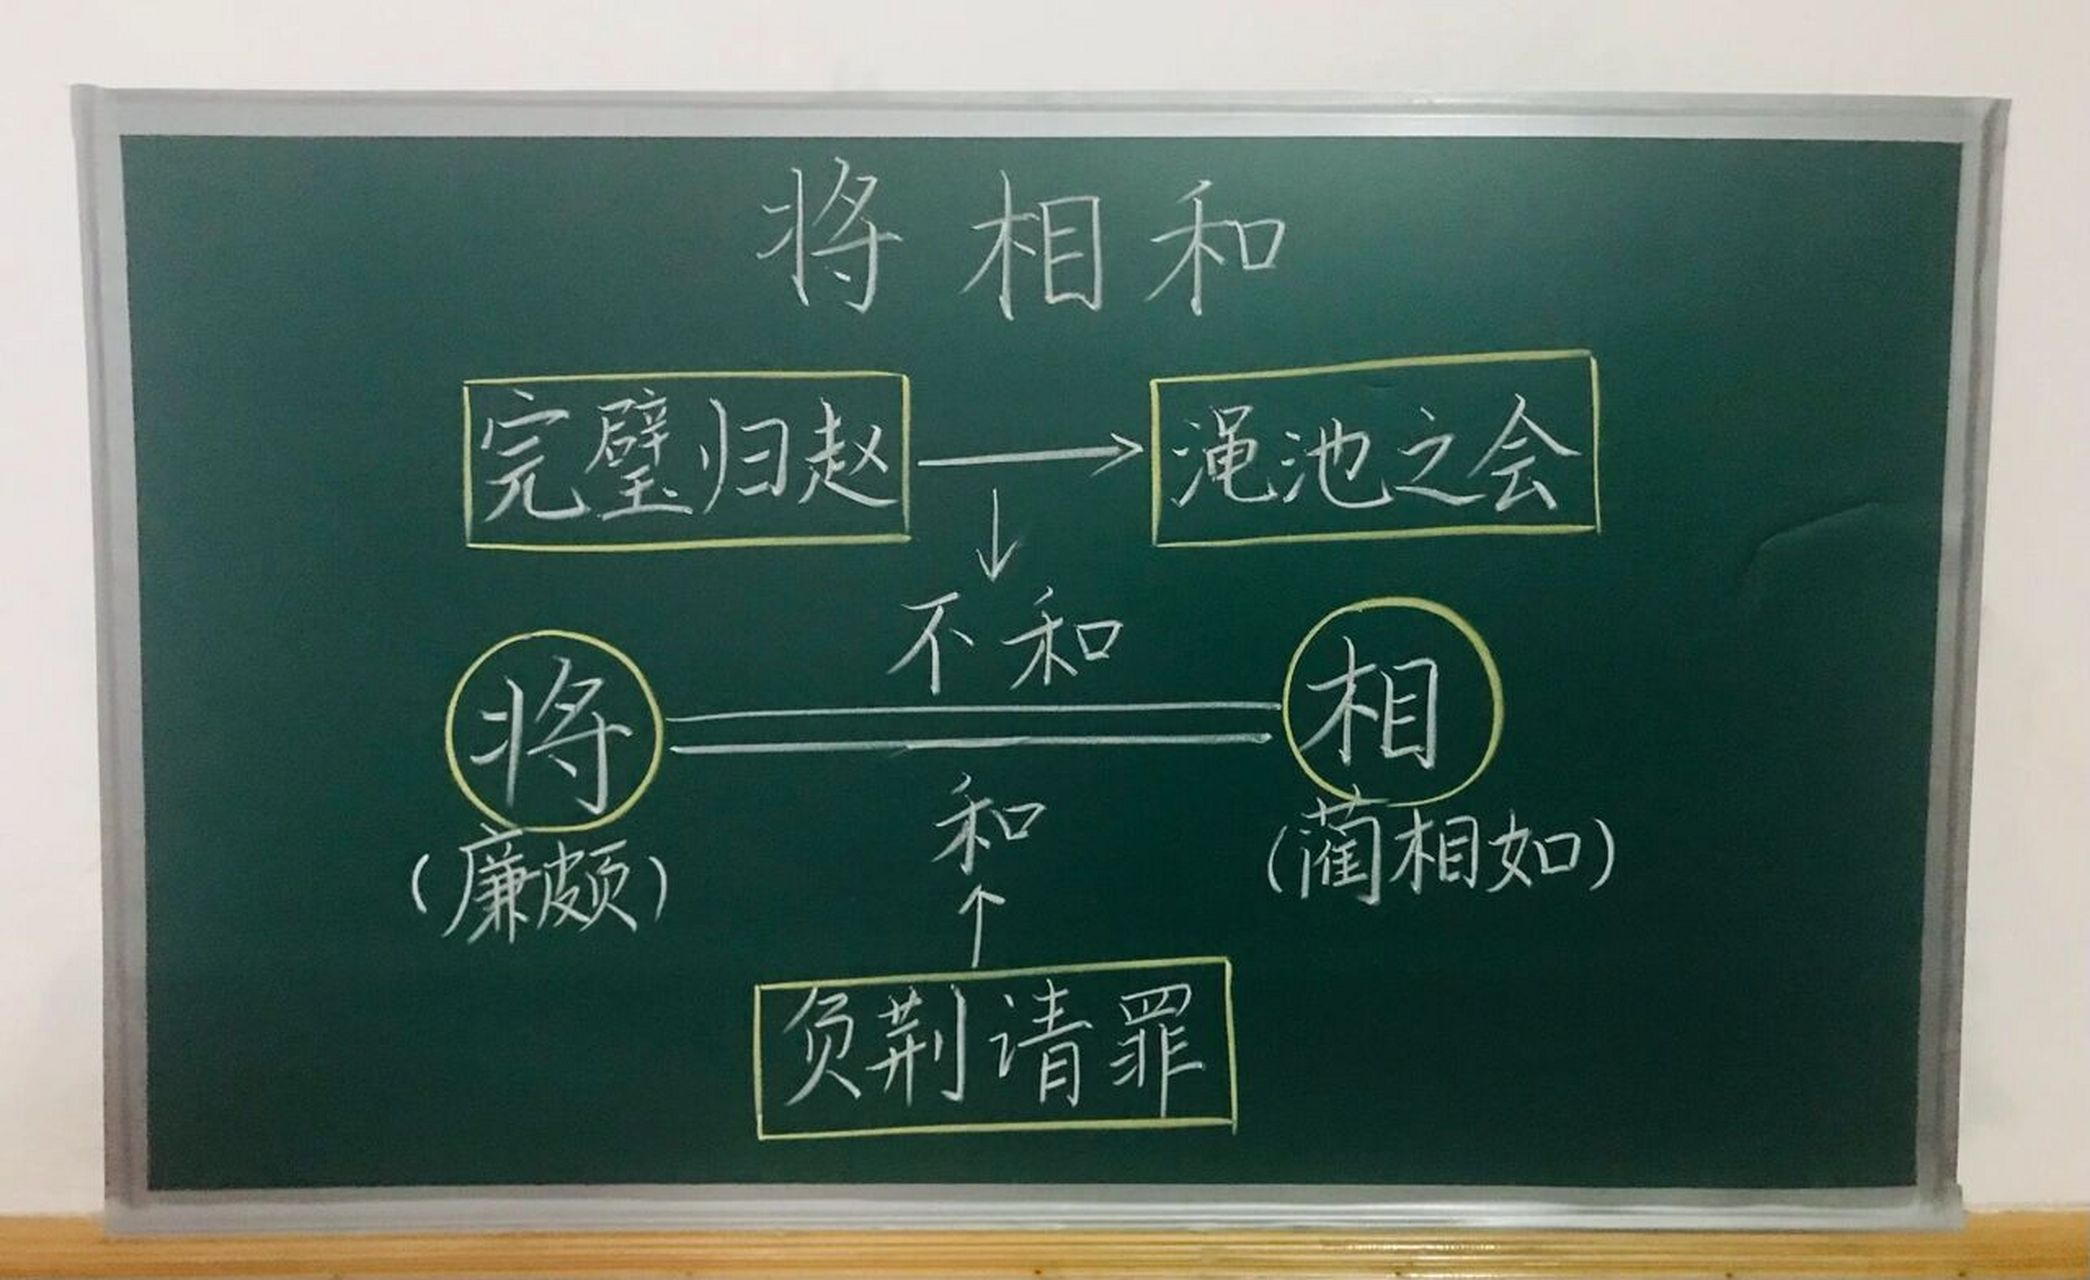 将相和
完璧归赵 → 渑池之会
↓
不和
将 相
和
(廉颇) (蔺相如)
↑
负荆请罪